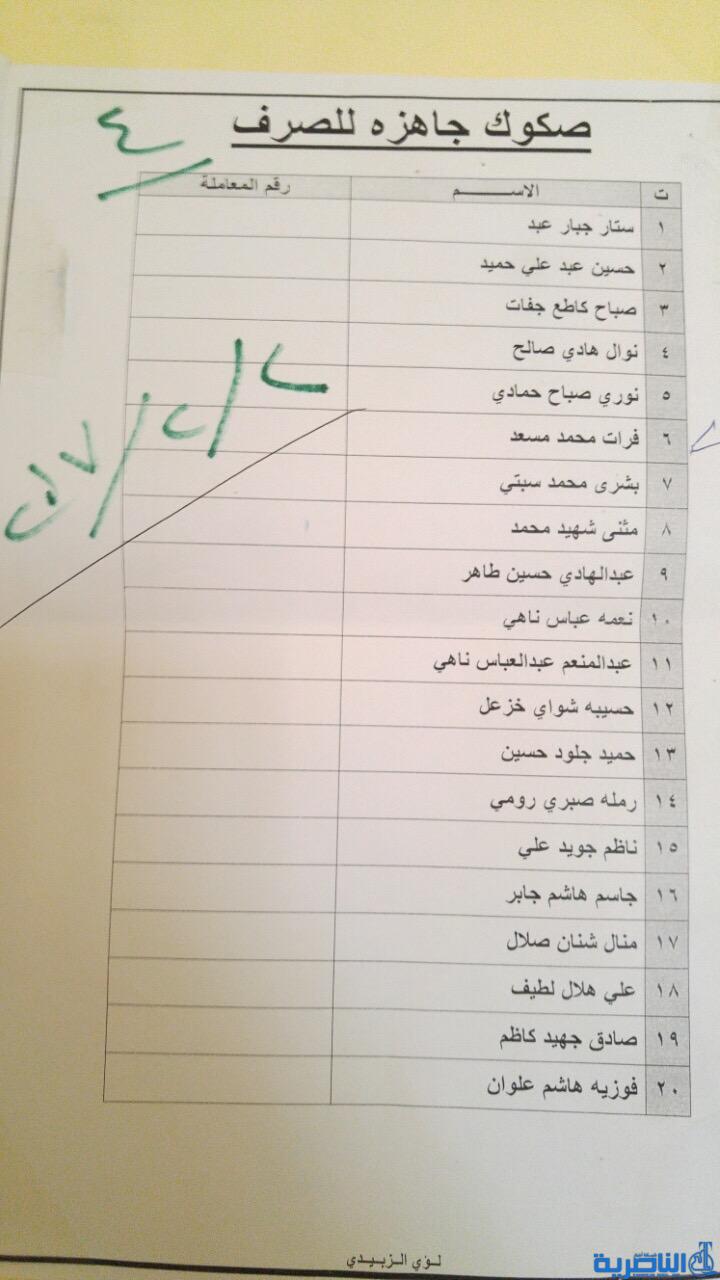 صكوك جاهزه للصرف
٤
ت الاســــــــم رقم المعاملة
١ ستار جبار عبد
٢ حسين عبد علي حميد
٣ صباح كاطع جفات
٤ نوال هادي صالح
٥ نوري صباح حمادي
٦ فرات محمد مسعد
٧ بشرى محمد سبتي
٨ مثنى شهيد محمد
٩ عبدالهادي حسين طاهر
١٠ نعمه عباس ناهي
١١ عبدالمنعم عبدالعباس ناهي
١٢ حسيبه شواي خزعل
١٣ حميد جلود حسين
١٤ رمله صبري رومي
١٥ ناظم جويد علي
١٦ جاسم هاشم جابر
١٧ منال شنان صلال
١٨ علي هلال لطيف
١٩ صادق جهيد كاظم
٢٠ فوزيه هاشم علوان
لؤي الزبيدي
الناصرية